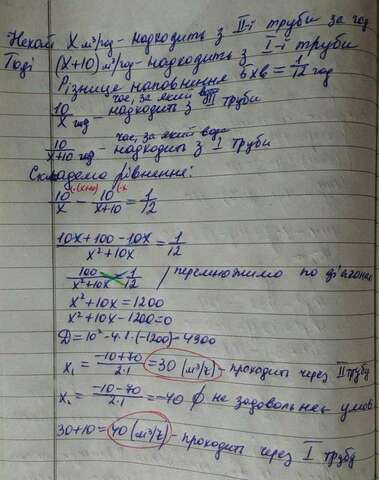 Нехай X м³/год - надходить з II-ї труби за год
Тоді (x+10) м³/год - надходить з I-ї труби
Різниця наповнення 5хв = 1/12 год
10/x год - час, за який вода надходить з II труби
10/x+10 год - час, за який вода надходить з I труби
Складемо рівняння:
10/x - 10/x+10 = 1/12
10x+100-10x/x²+10x = 1/12
100/x²+10x = 1/12 / перемножимо по діагоналі
x²+10x=1200
x²+10x-1200=0
D=10²-4·1·(-1200)=4900
x₁ = -10+70/2·1 = 30 (м³/г) - проходить через II трубу
x₂ = -10-70/2·1 = -40 ∅ не задовольняє умові
30+10=40 (м³/г) - проходить через I трубу